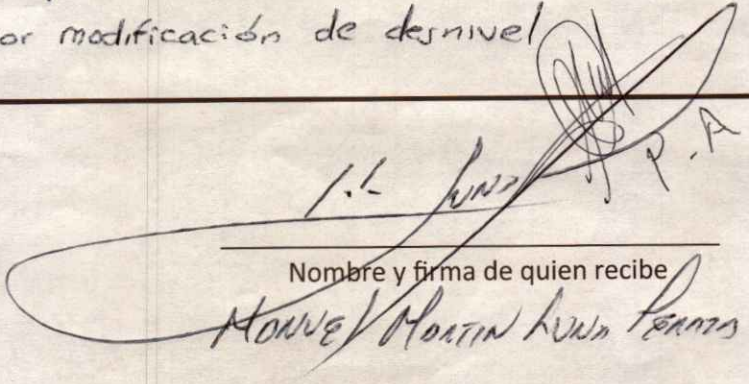 or modificación de desnivel
P.A
Luna
Nombre y firma de quien recibe
Manuel Martin Luna